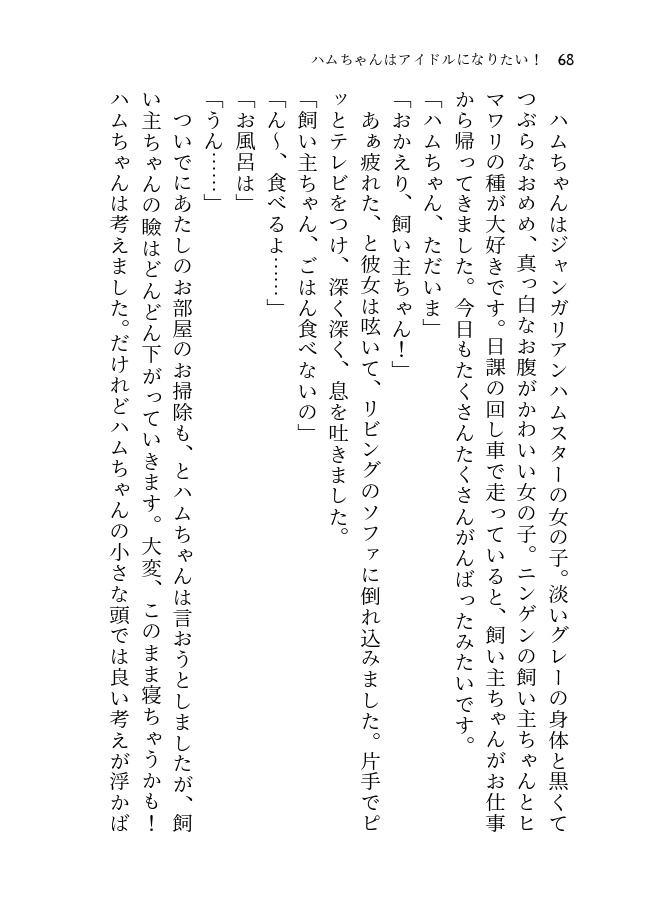 ハムちゃんはアイドルになりたい！ 68
ハムちゃんはジャンガリアンハムスターの女の子。淡いグレーの身体と黒くて
つぶらなおめめ、真っ白なお腹がかわいい女の子。ニンゲンの飼い主ちゃんとヒ
マワリの種が大好きです。日課の回し車で走っていると、飼い主ちゃんがお仕事
から帰ってきました。今日もたくさんたくさんがんばったみたいです。
「ハムちゃん、ただいま」
「おかえり、飼い主ちゃん！」
あぁ疲れた、と彼女は呟いて、リビングのソファに倒れ込みました。片手でピ
ッとテレビをつけ、深く深く、息を吐きました。
「飼い主ちゃん、ごはん食べないの」
「ん〜、食べるよ……」
「お風呂は」
「うん……」
ついでにあたしのお部屋のお掃除も、とハムちゃんは言おうとしましたが、飼
い主ちゃんの瞼はどんどん下がっていきます。大変、このまま寝ちゃうかも！
ハムちゃんは考えました。だけれどハムちゃんの小さな頭では良い考えが浮かば